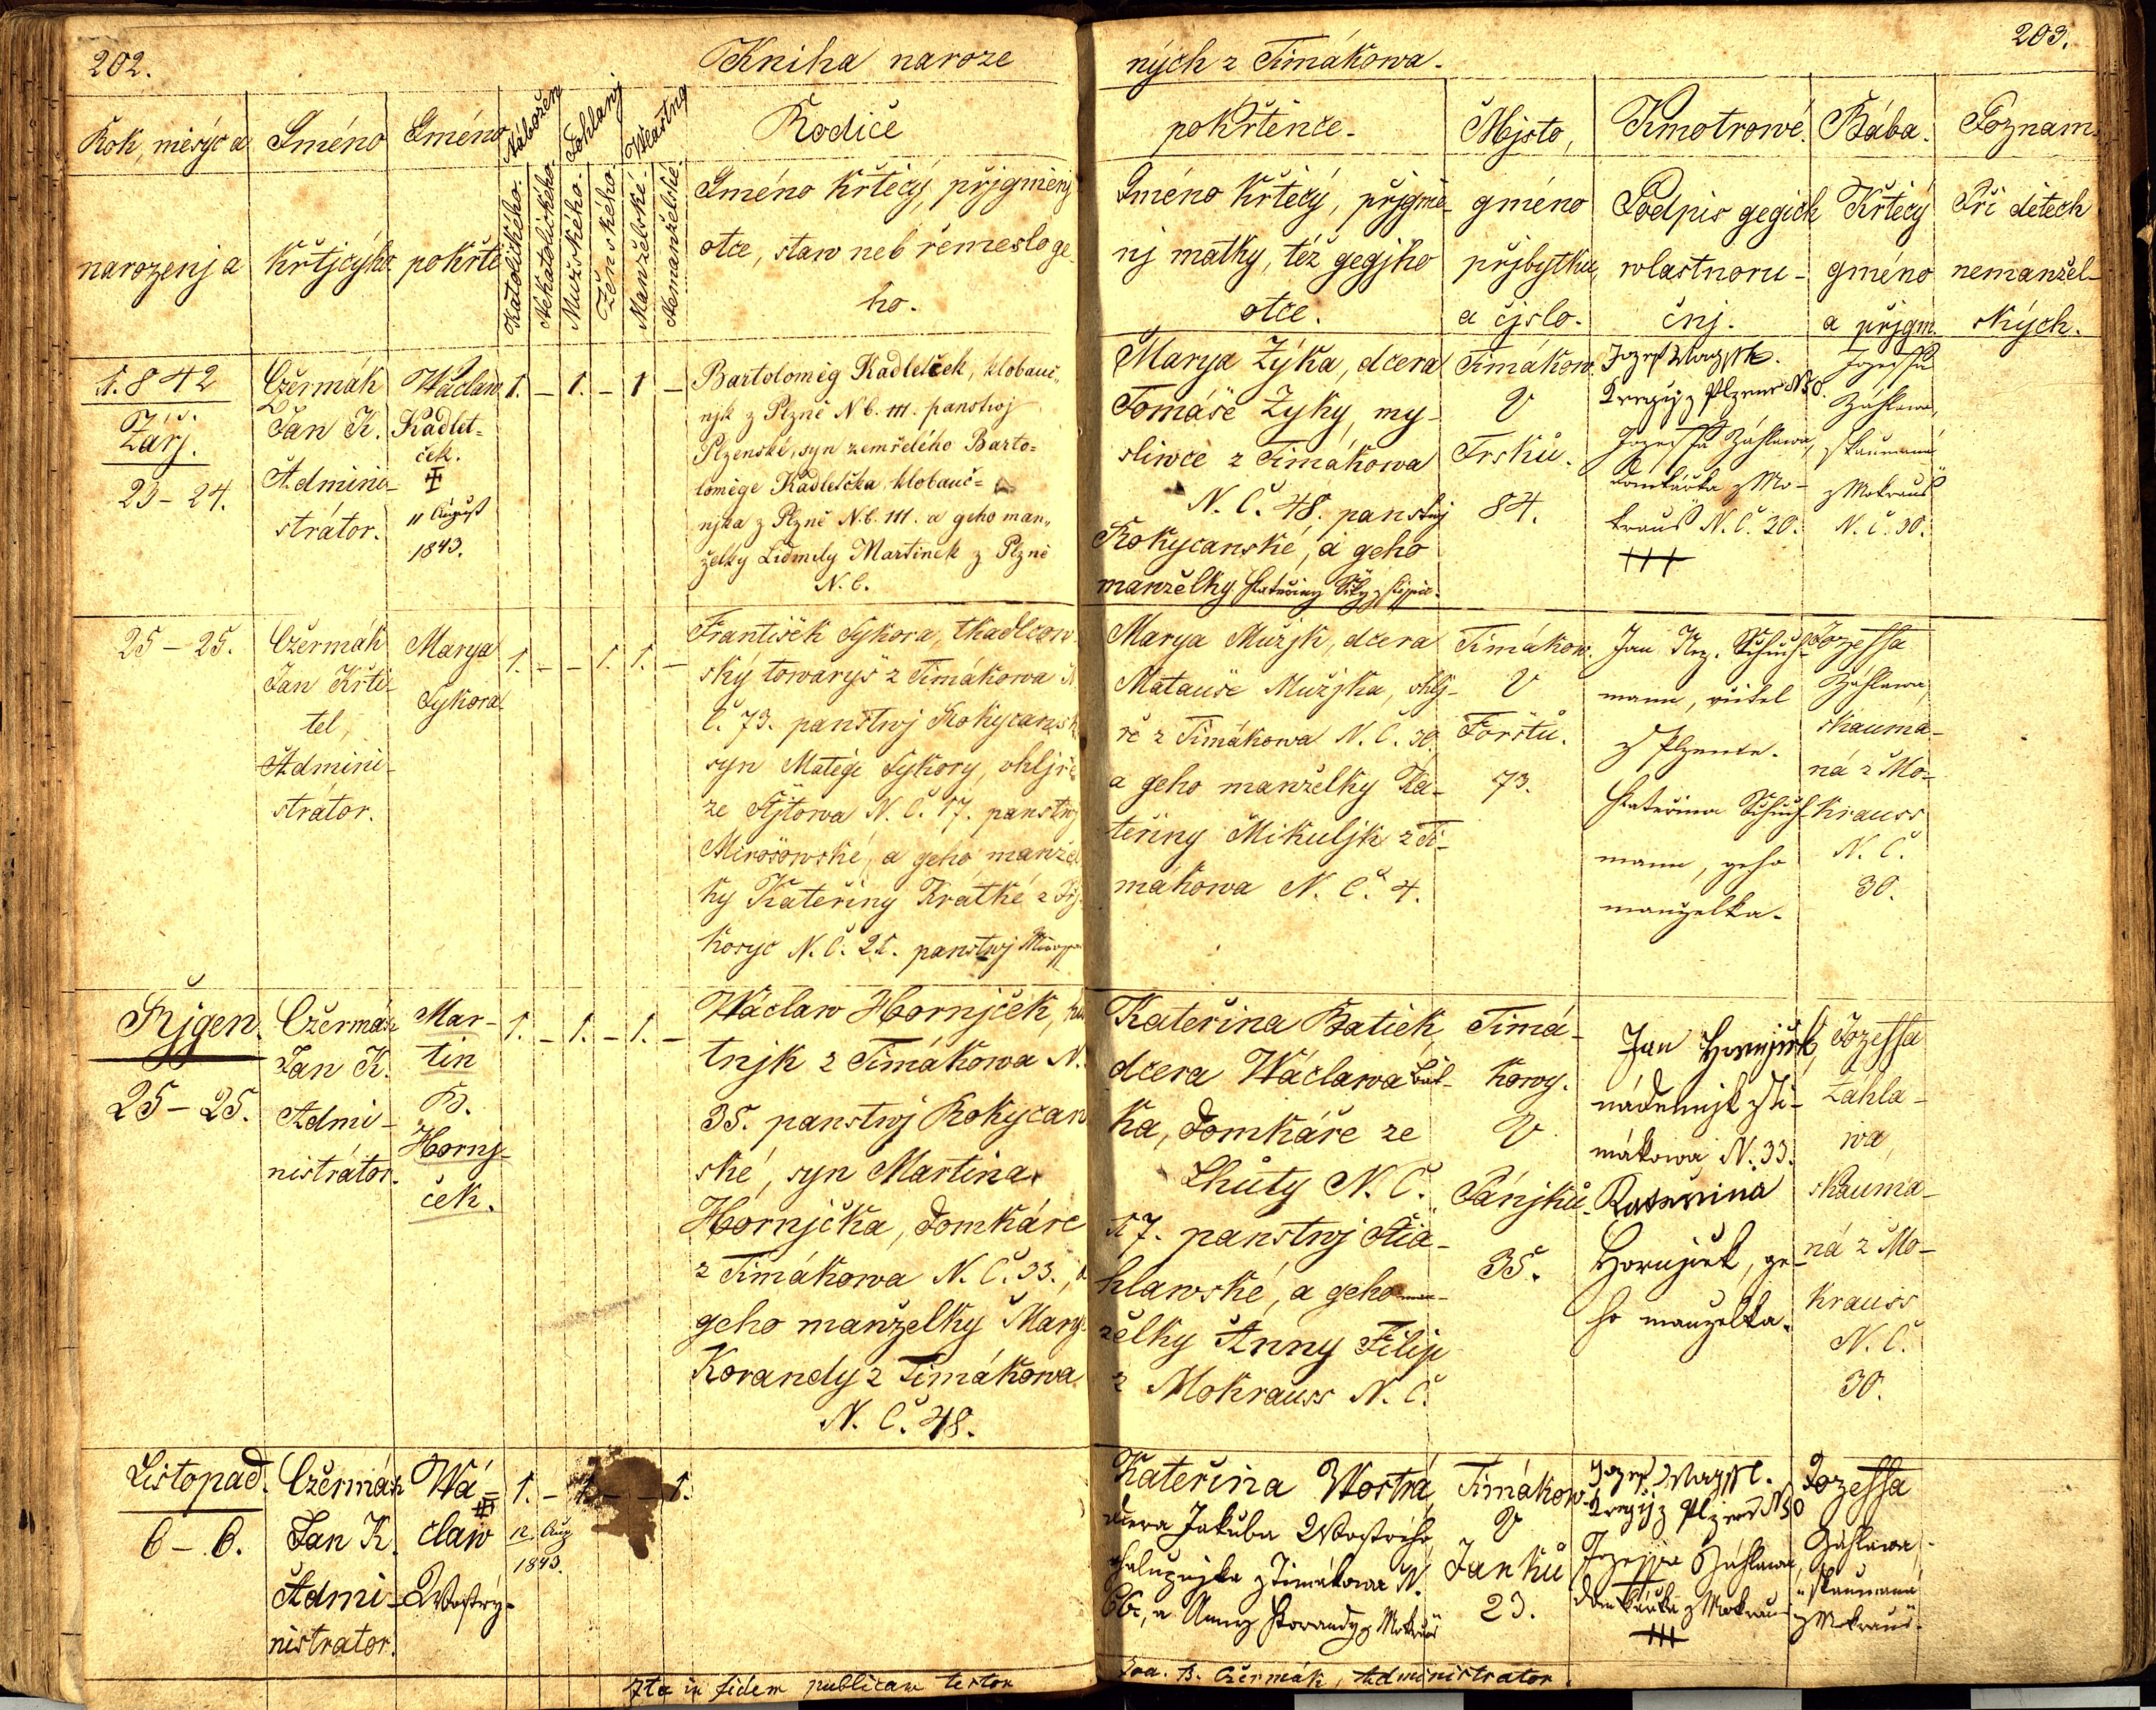 202.
Kniha naroze
Rok, měsýc a
narozenj a
Gméno
křtjcýho
Gméno
pokřtě
Nábožen
Katolického.
Nekatolického.
Pohlawj
Mužského.
Ženského.
Wlastno
Manželské.
Nemanželské.
Rodiče
Gméno křtěcý, přjgměnj
otce, staw neb řemeslo ge
ho.
1.842
Zářj.
23-24.
Czěrmák
Jan K.
Admini-
strátor.
Wáclaw
Kadlet-
ček.
11 August
1843.
1. - 1. - 1 -
Bartoloměg Kadletček, klobauč-
njk z Plzně N.C. 111. panstwj
Plzenské, syn zemřelého Barto-
loměge Kadletčka, klobauč-
njka z Plzně N.C. 111. a geho man-
želky Lidmily Martinek z Plzně
N.C.
25-25.
Czěrmák
Jan Křti-
tel,
Admini-
strátor.
Marya
Sykora
1. - - 1. 1. -
František Sykora, tkadlcow
ský towaryš z Timákowa N
Č. 73. panstwj Rokycansk
syn Matěge Sykory, uhljře
ze Štjtowa N.Č. 17. panstwj
Mirošowské, a geho manžel
ky Kateřiny Krátké z Přj-
kosyc N.Č. 21. panstwj
Řjgen.
25-25.
Czěrmák
Jan K.
Admi-
nistrátor.
Mar-
tin
B.
Hornj-
ček.
1. - 1. - 1. -
Wáclaw Hornjček,
tnjk z Timákowa N.
35. panstwj Rokycan
ské, syn Martina
Hornjčka, domkáře
z Timákowa N.Č. 33., a
geho manželky Mary
Korandy z Timákowa
N.Č. 48.
Listopad.
6-6.
Czěrmák
Jan K.
Admi-
nistrator.
Wá-
claw
Wostrý.
12. Aug
1843.
1. - 1. - - 1.
Ita in fidem publicam testor
203.
ných z Timákowa.
pokřtěnce.
Gméno křtěcý, přjgmě-
nj matky, též gegjho
otce.
Mjsto,
gméno
přjbytku,
a čjslo.
Kmotrowé.
Podpis gegich
wlastnoru-
čnj.
Bába.
Křtěcý
gméno
a přjgm.
Poznam.
Při dětech
nemanžel-
ských.
Marya Žyka, dcera
Tomáše Žyky, my-
sliwce z Timákowa
N.Č. 48. panstwj
Rokycanské, a geho
manželky Kateřiny
Timákow.
U
Trsků.
84.
Kregčj z Plzně N 50.
Jozeffa Záhlawa,
domkářka z Mo-
krauš N.Č. 30.
+++
Jozeffa
Záhlawa,
skaumaná
z Mokrauš
N.Č. 30.
Marya Mužjk, dcera
Matauše Mužjka, uhlj-
ře z Timákowa N.Č. 30.
a geho manželky Ka-
teřiny Mikuljk z Ti-
mákowa N.Č. 4.
Timákow.
U
Forštů.
73.
Jan Nep. Schuh-
mann, učitel
z Plzence.
Kateřina Schuh-
mann, geho
manželka.
Jozeffa
Záhlawa,
skauma-
ná z Mo-
krauss
N.Č.
30.
Kateřina Batiek,
dcera Wáclawa Bat-
ka, domkáře ze
Lhůty N.Č.
17. panstwj Štia-
hlawské, a geho man-
želky Anny Filip
z Mokrauss N.Č.
Timá-
kowy.
U
Pánjků.
35.
Jan Hornjček,
nádenjk z Ti-
mákowa N. 33.
Kateřina
Hornjček, ge-
ho manželka.
Jozeffa
Záhla-
wa,
skauma-
ná z Mo-
krauss
N.Č.
30.
Kateřina Wostrá,
dcera Jakuba Wostrého,
chalupnjka z Timákowa N.
66., a Anny Korandy z Mokrauš
Timákow.
U
Janků
23.
Kregčj z Plzně N 50
Jozeffa Záhlawa,
domkářka z Mokrauš
+++
Jozeffa
Záhlawa,
skaumaná
z Mokrauš.
Joa. B. Czěrmák, Administrator.